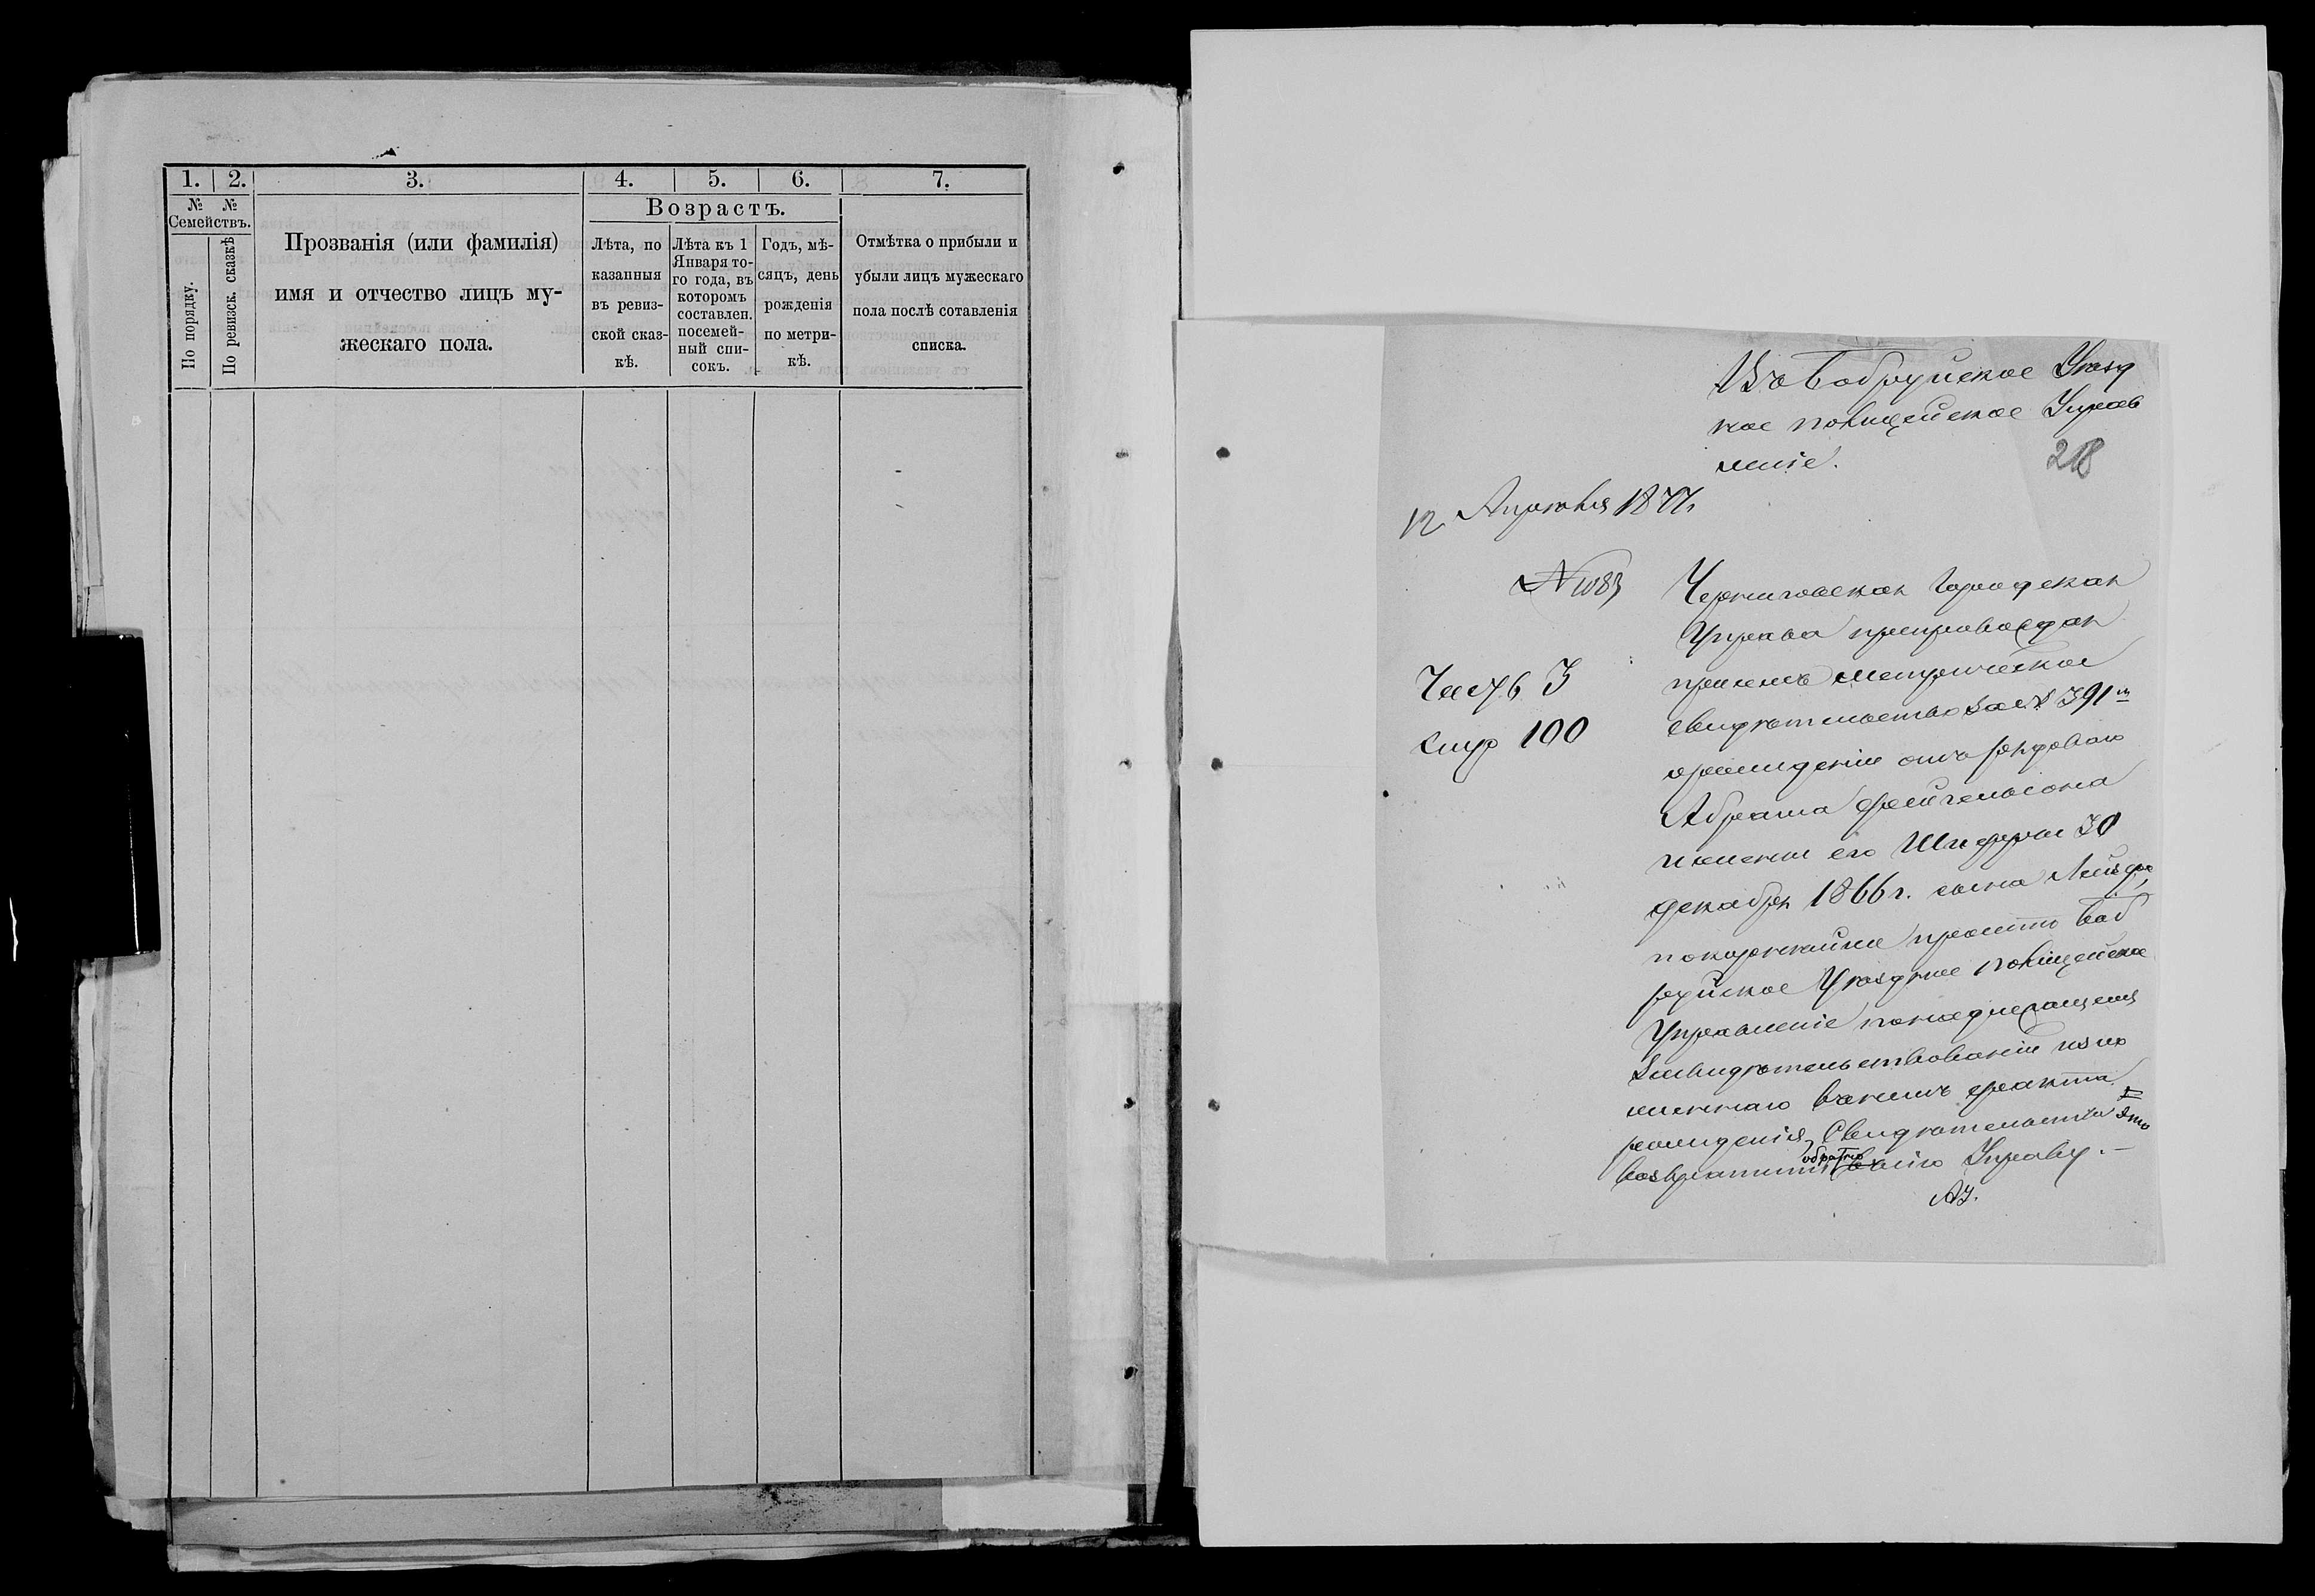 1. 2. 3. 4. 5. 6. 7.
№ №
Семействъ.
По порядку.
По ревизск. сказкѣ
Прозванія (или фамилія)
имя и отчество лицъ му-
жескаго пола.
Возрастъ.
Лѣта, по
казанныя
въ ревиз-
ской сказ-
кѣ.
Лѣта къ 1
Января то-
го года, въ
которомъ
составлен.
посемей-
ный спи-
сокъ.
Годъ, мѣ-
сяцъ, день
рожденія
по метри-
кѣ.
Отмѣтка о прибыли и
убыли лицъ мужескаго
пола послѣ сотавленія
списка.
Въ Бобруйское Уѣзд
ное полицейское Управ
леніе.
218
12 Апрѣля 1877.
№ 1083
Часть 3
стр 100
Черниговская Городская
Управа препровождая
при семъ метрическое
свидѣтельство за № 391
о рожденіи отъ рядоваго
Абрама
и жены его 30
декабря 1866 г. сына
покорнѣйше проситъ Боб
руйское Уѣздное полицейское
Управленіе по надлежащемъ
засвидѣтельствованіи изло
женнаго въ немъ факта
рожденія, свидѣтельство это
возвратить обратно въ сію Управу.-